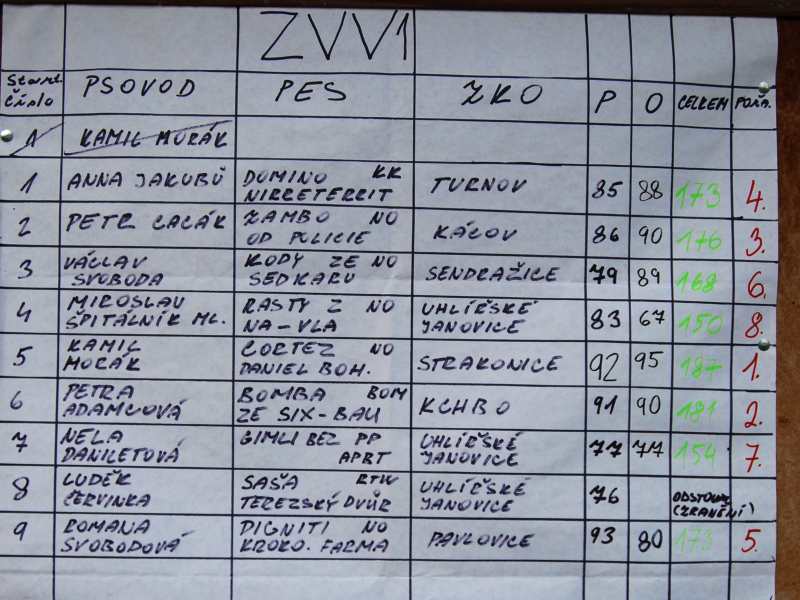 ZVV1
START. ČÍSLO PSOVOD PES ZKO P O CELKEM POŘA.
1 KAMIL MORÁK
1 ANNA JAKUBŮ DOMINO KK TURNOV 85 88 173 4.
NIRRETERRIT
2 PETR CACÁK ZAMBO NO KÁCOV 86 90 176 3.
OD POLICIE
3 VÁCLAV KODY ZE NO SENDRAŽICE 79 89 168 6.
SVOBODA SEDKARU
4 MIROSLAV RASTY Z NO UHLÍŘSKÉ 83 67 150 8.
ŠPITÁLNÍK ML. NA-VLA JANOVICE
5 KAMIL CORTEZ NO STRAKONICE 92 95 187 1.
MORÁK DANIEL BOH.
6 PETRA BOMBA BOM KCHBO 91 90 181 2.
ADAMCOVÁ ZE SIX-BAU
7 NELA GIMLI BEZ PP UHLÍŘSKÉ 77 77 154 7.
DANILETOVÁ APBT JANOVICE
8 LUDĚK SAŠA RTW UHLÍŘSKÉ 76 ODSTOUP.
ČERVINKA TEREZSKÝ DVŮR JANOVICE (ZRANĚNÍ)
9 ROMANA DIGNITI NO PAVLOVICE 93 80 173 5.
SVOBODOVÁ KROKO. FARMA